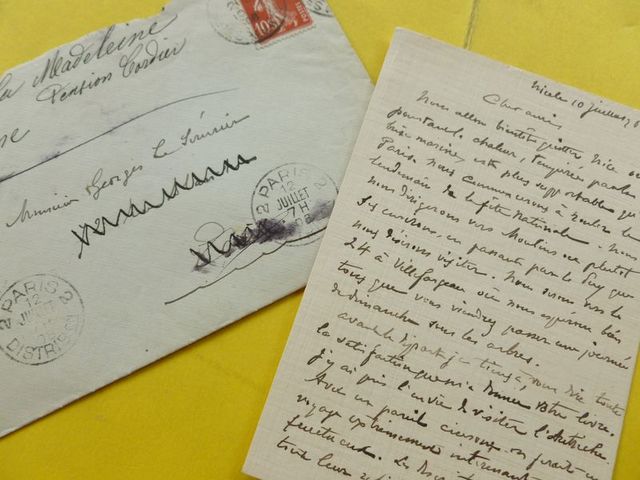 la Madeleine
Pension Cordier
Monsieur Georges Le
2 PARIS 2
12
JUILLET
7 H
2 PARIS 2
12
DISTRIB
10 juillet
Cher ami,
Nous allons bientôt quitter Nice
pourtant, chaleur, tempérée par la
brise marine, est plus supportable que
Paris. Nous commencerons à rouler le
lendemain de la fête Nationale. Nous
nous dirigerons vers Moulins ou plutôt
en passant par le Puy que
nous désirons visiter. Nous serons le
24 à où nous espérons bien
tous que vous viendrez passer une journée
de dimanche sous les arbres.
avant le départ je tiens à vous dire toute
la satisfaction que m'a donnée votre livre.
J'y ai pris l'envie de visiter l'Autriche.
Avec un pareil on ferait un
voyage extrêmement intéressant